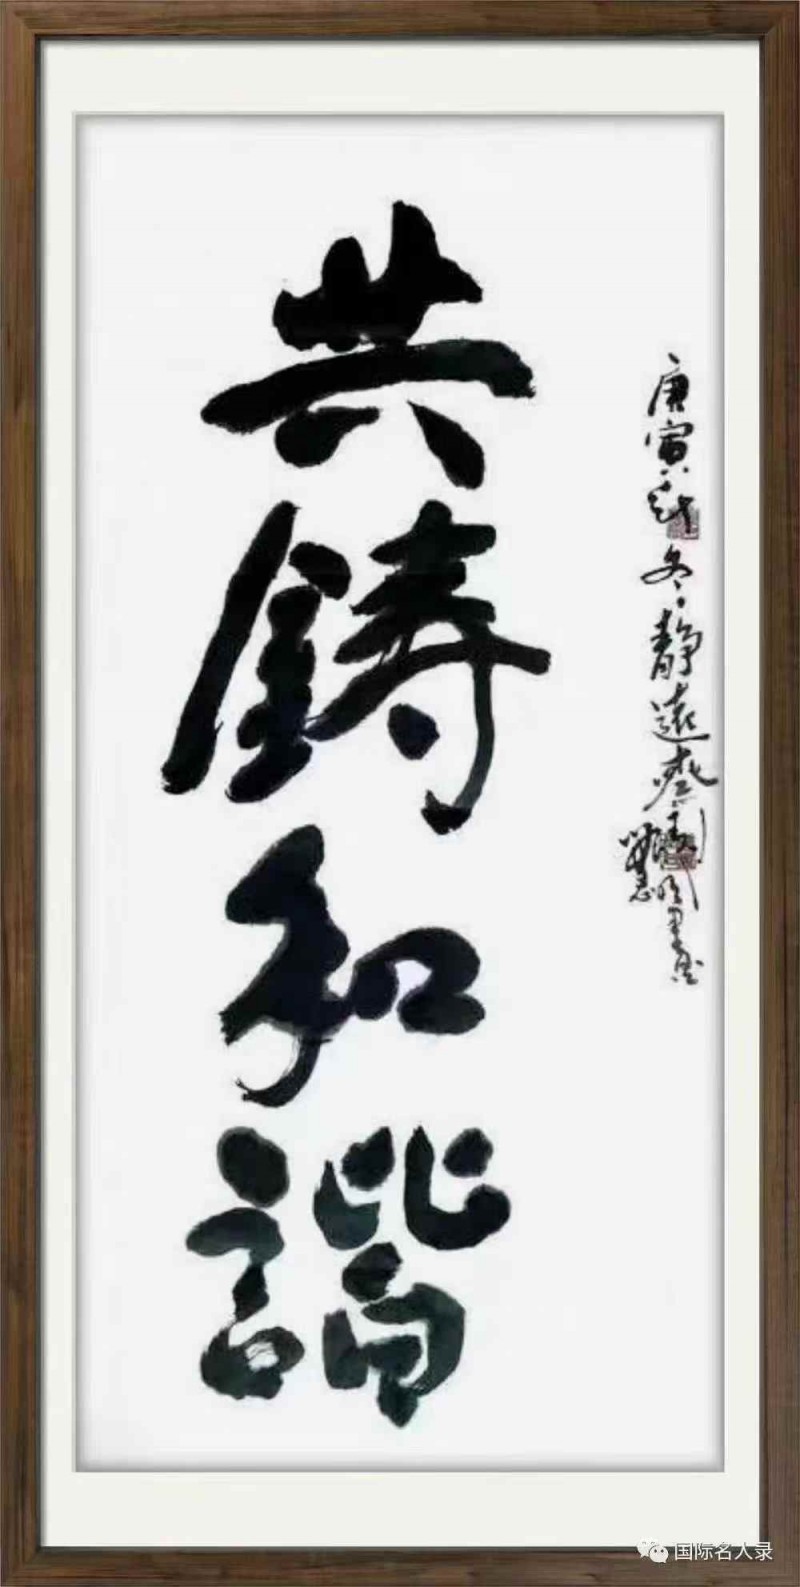 共鑄和諧
庚寅 冬 靜遠齋
国际名人录